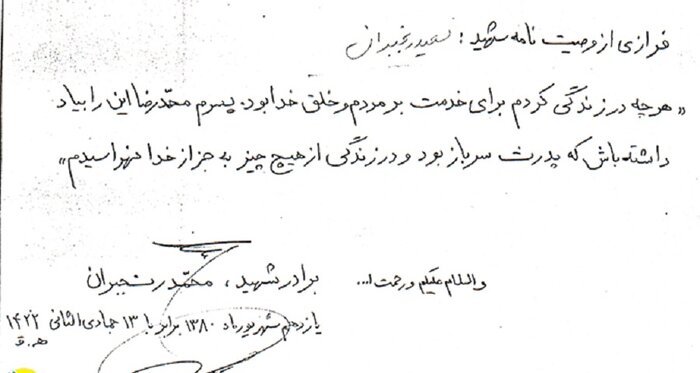 فرازی از وصیت نامه شهید : سعید رنجبران
« هر چه در زندگی کردم برای خدمت بر مردم و خلق خدا بود. پسرم محمّدرضا این را بیاد
داشته باش که پدرت سرباز بود و در زندگی از هیچ چیز به جز از خدا نهراسیدم »
والسلام علیکم و رحمت ا...
برادر شهید، محمّد رنجبران
یازدهم شهریورماه ۱۳۸۰ برابر با ۱۳ جمادی الثانی ۱۴۲۲
ه.ق